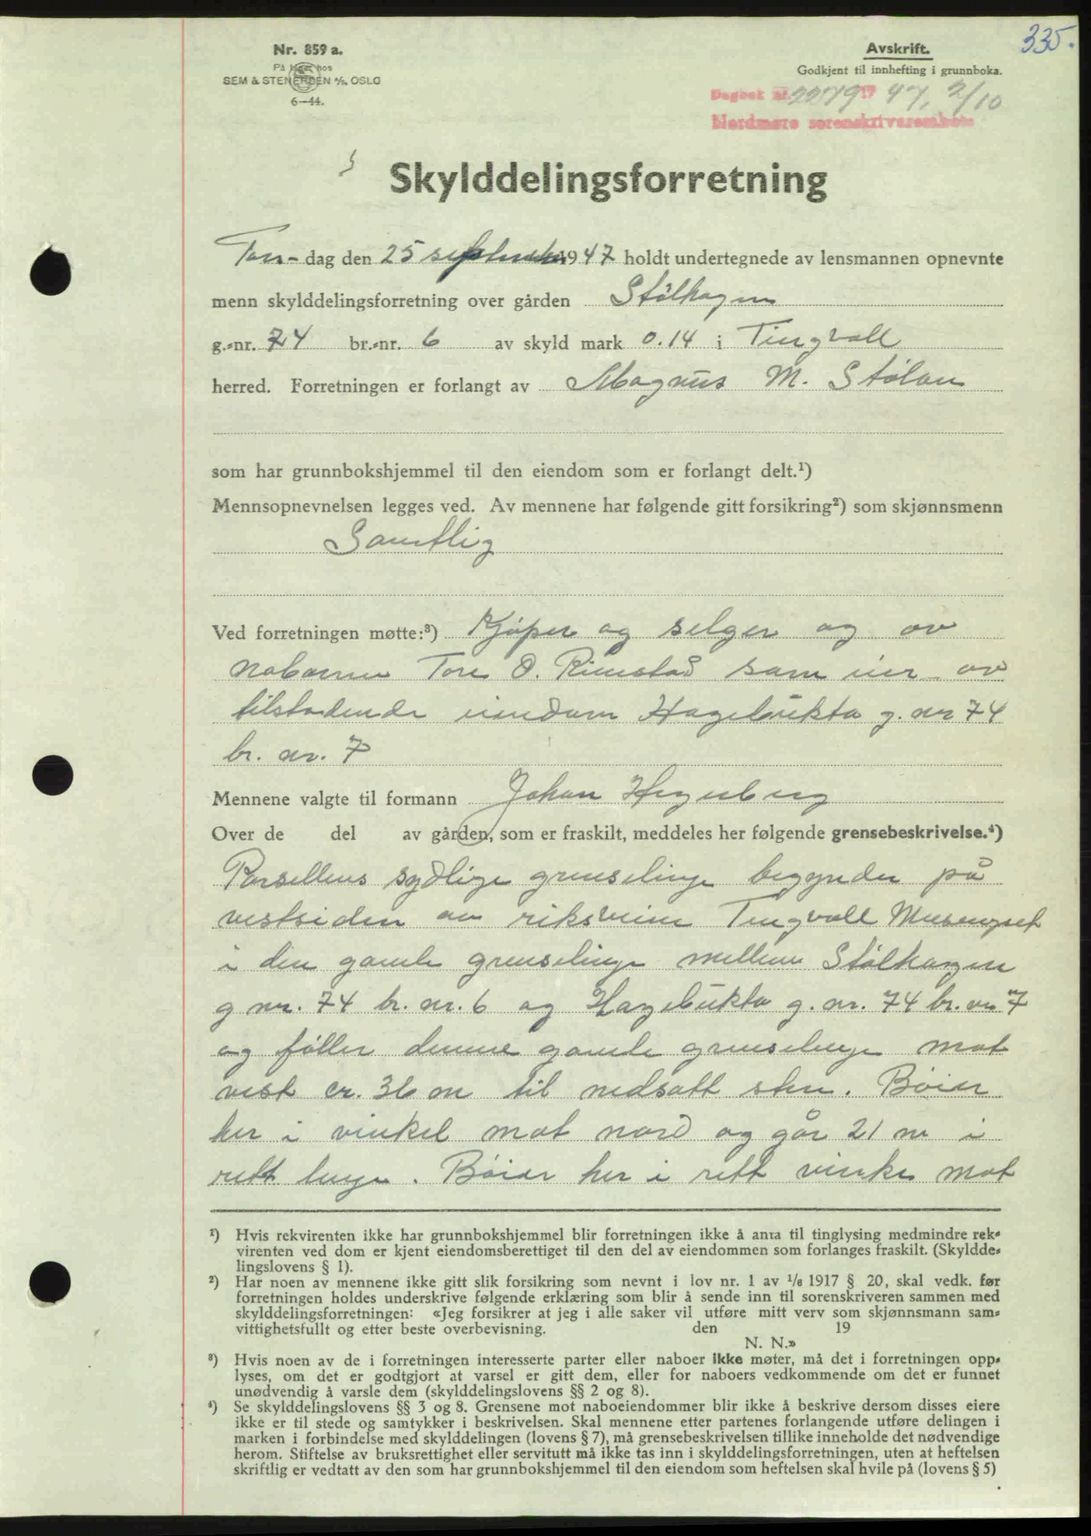 335.
Nr. 859 a.
På lager hos
SEM & STENERSEN A/S, OSLO
6-44.
Avskrift.
Godkjent til innhefting i grunnboka.
Dagbok nr. 2279 1947, 2/10
Nordmøre sorenskriverembete
Skylddelingsforretning
Tors-dag den 25 september 1947 holdt undertegnede av lensmannen opnevnte
menn skylddelingsforretning over gården Stølhagen
g.-nr. 74 br.-nr. 6 av skyld mark 0.14 i Tingvoll
herred. Forretningen er forlangt av Magnus M. Stølan
som har grunnbokshjemmel til den eiendom som er forlangt delt.¹)
Mennsopnevnelsen legges ved. Av mennene har følgende gitt forsikring²) som skjønnsmenn
Samtlig
Ved forretningen møtte:³) Kjøper og selger og av
naboerne Tore O. Rimstad som eier av
tilstødende eiendom Hagebukta g. nr 74
br. nr. 7
Mennene valgte til formann Johan Hegerberg
Over de del av gården, som er fraskilt, meddeles her følgende grensebeskrivelse.⁴)
Parsellens sydlige grenselinje begynder på
vestsiden av riksveien Tingvoll Meisingset
i den gamle grenselinje mellem Stølhagen
g nr. 74 br. nr. 6 og Hagebukta g. nr. 74 br. nr 7
og føller denne gamle grenselinje mot
vest cr. 36 m til nedsatt sten. Bøier
her i vinkel mot nord og går 21 m i
rett linje. Bøier her i rett vinkel mot
¹) Hvis rekvirenten ikke har grunnbokshjemmel blir forretningen ikke å anta til tinglysing medmindre rek-
virenten ved dom er kjent eiendomsberettiget til den del av eiendommen som forlanges fraskilt. (Skyldde-
lingslovens § 1).
²) Har noen av mennene ikke gitt slik forsikring som nevnt i lov nr. 1 av 1/6 1917 § 20, skal vedk. før
forretningen holdes underskrive følgende erklæring som blir å sende inn til sorenskriveren sammen med
skylddelingsforretningen: «Jeg forsikrer at jeg i alle saker vil utføre mitt verv som skjønnsmann sam-
vittighetsfullt og etter beste overbevisning. den 19
N. N.»
³) Hvis noen av de i forretningen interesserte parter eller naboer ikke møter, må det i forretningen opp-
lyses, om det er godtgjort at varsel er gitt dem, eller for naboers vedkommende om det er funnet
unødvendig å varsle dem (skylddelingslovens §§ 2 og 8).
⁴) Se skylddelingslovens §§ 3 og 8. Grensene mot naboeiendommer blir ikke å beskrive dersom disses eiere
ikke er til stede og samtykker i beskrivelsen. Skal mennene etter partenes forlangende utføre delingen i
marken i forbindelse med skylddelingen (lovens § 7), må grensebeskrivelsen tillike inneholde det nødvendige
herom. Stiftelse av bruksrettighet eller servitutt må ikke tas inn i skylddelingsforretningen, uten at heftelsen
skriftlig er vedtatt av den som har grunnbokshjemmel til den eiendom som heftelsen skal hvile på (lovens § 5)